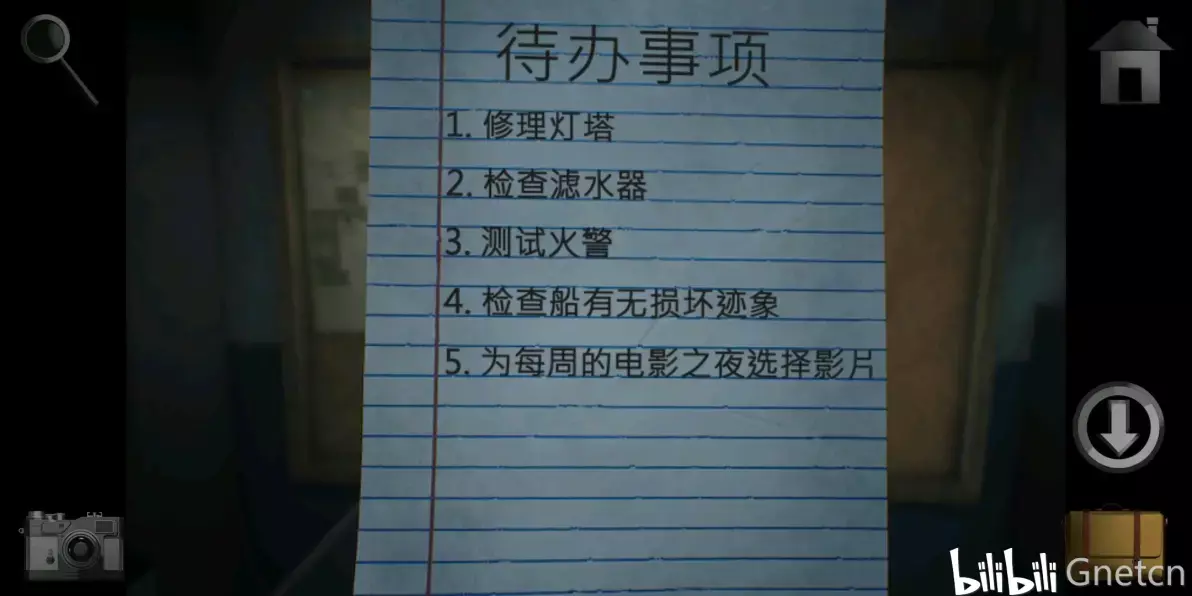 待办事项
1. 修理灯塔
2. 检查滤水器
3. 测试火警
4. 检查船有无损坏迹象
5. 为每周的电影之夜选择影片
bilibili Gnetcn